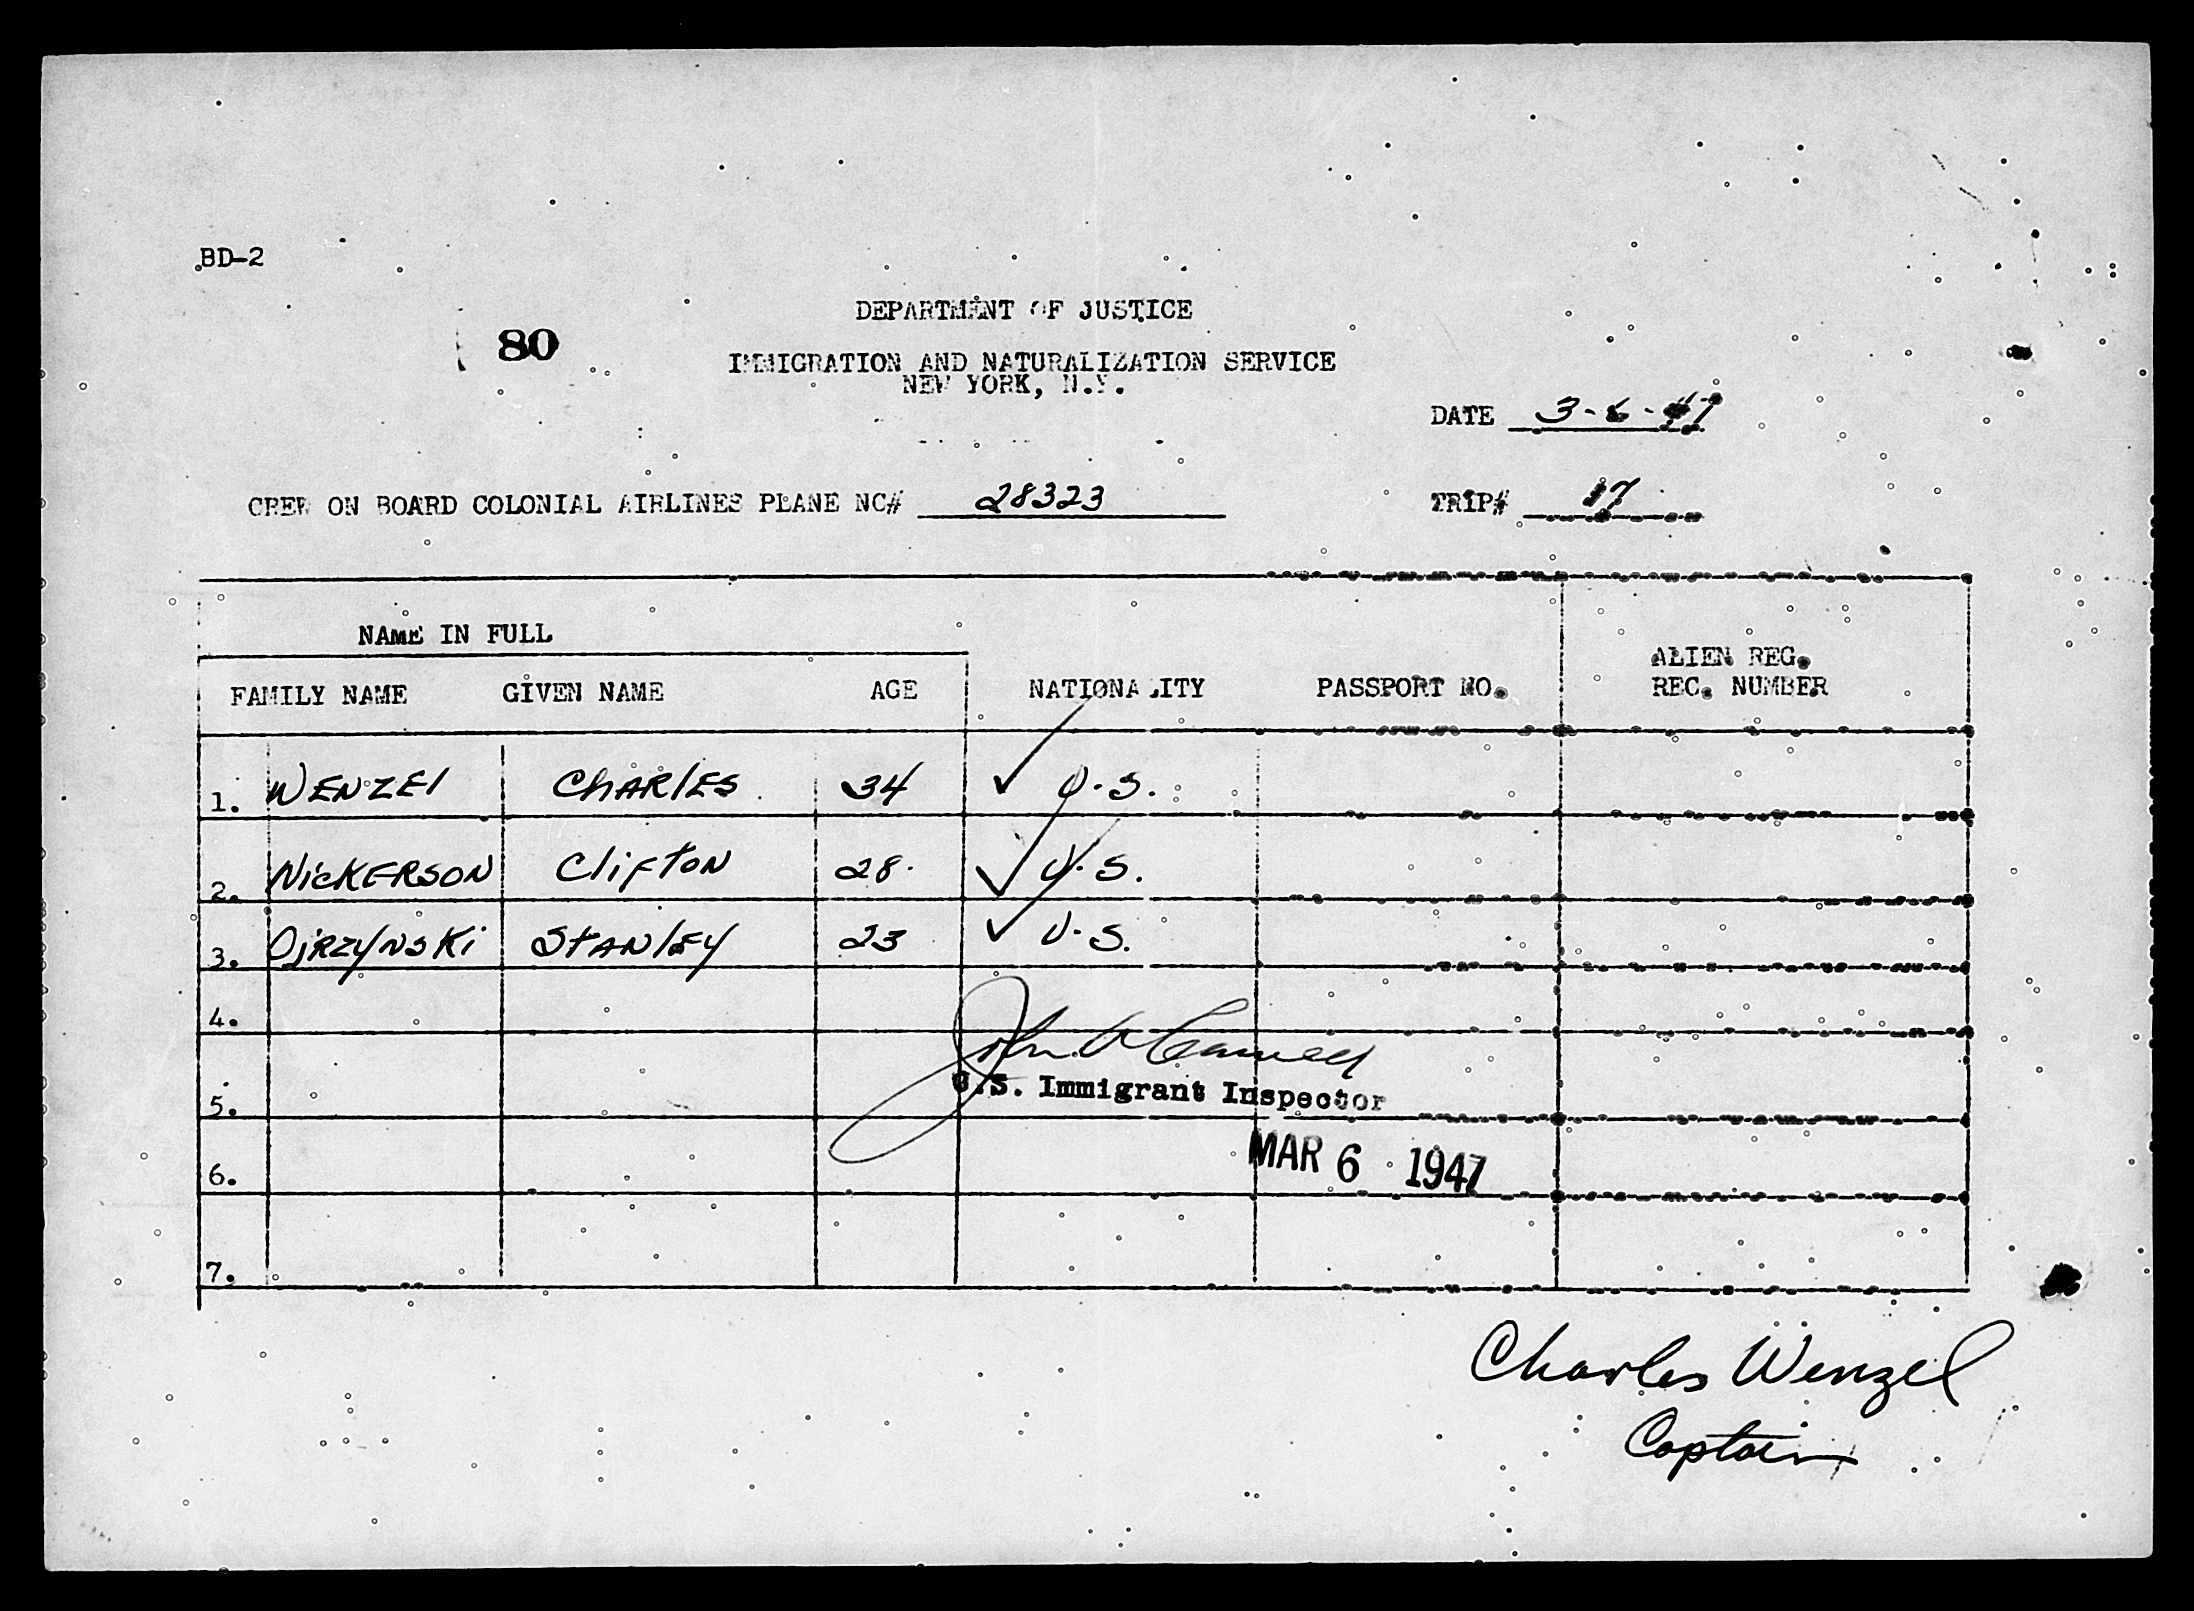 BD-2
DEPARTMENT OF JUSTICE
80
IMMIGRATION AND NATURALIZATION SERVICE
NEW YORK, N.Y.
DATE 3-6-47
CREW ON BOARD COLONIAL AIRLINES PLANE NC# 28323 TRIP# 17
NAME IN FULL
ALIEN REG.
FAMILY NAME GIVEN NAME AGE NATIONALITY PASSPORT NO. REC. NUMBER
1. WENZEl ChARlES 34 ✓ U.S.
2. NicKERSON CliFTON 28. ✓ U.S.
3. OjRZYNSKi STANlEY 23 ✓ U.S.
4.
John
U.S. Immigrant Inspector
5.
MAR 6 1947
6.
7.
Charles Wenzel
Captain